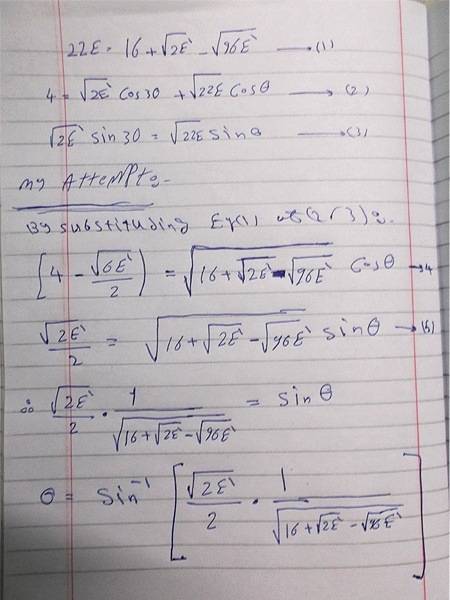 22E = 16 + √2E` - √96E` → (1)
4 = √2E` Cos30 + √22E Cosθ → (2)
√2E` sin30 = √22E sinθ → (3)
my Attempt:-
By substituding Eq(1) at (2,3):-
[4 - √6E`/2) = √16 + √2E` - √96E` Cosθ → 4
√2E`/2 = √16 + √2E` - √96E` sinθ → (5)
∴ √2E`/2 · 1/√16+√2E`-√96E` = sinθ
θ = Sin⁻¹ [√2E`/2 · 1/√16+√2E`-√96E`]